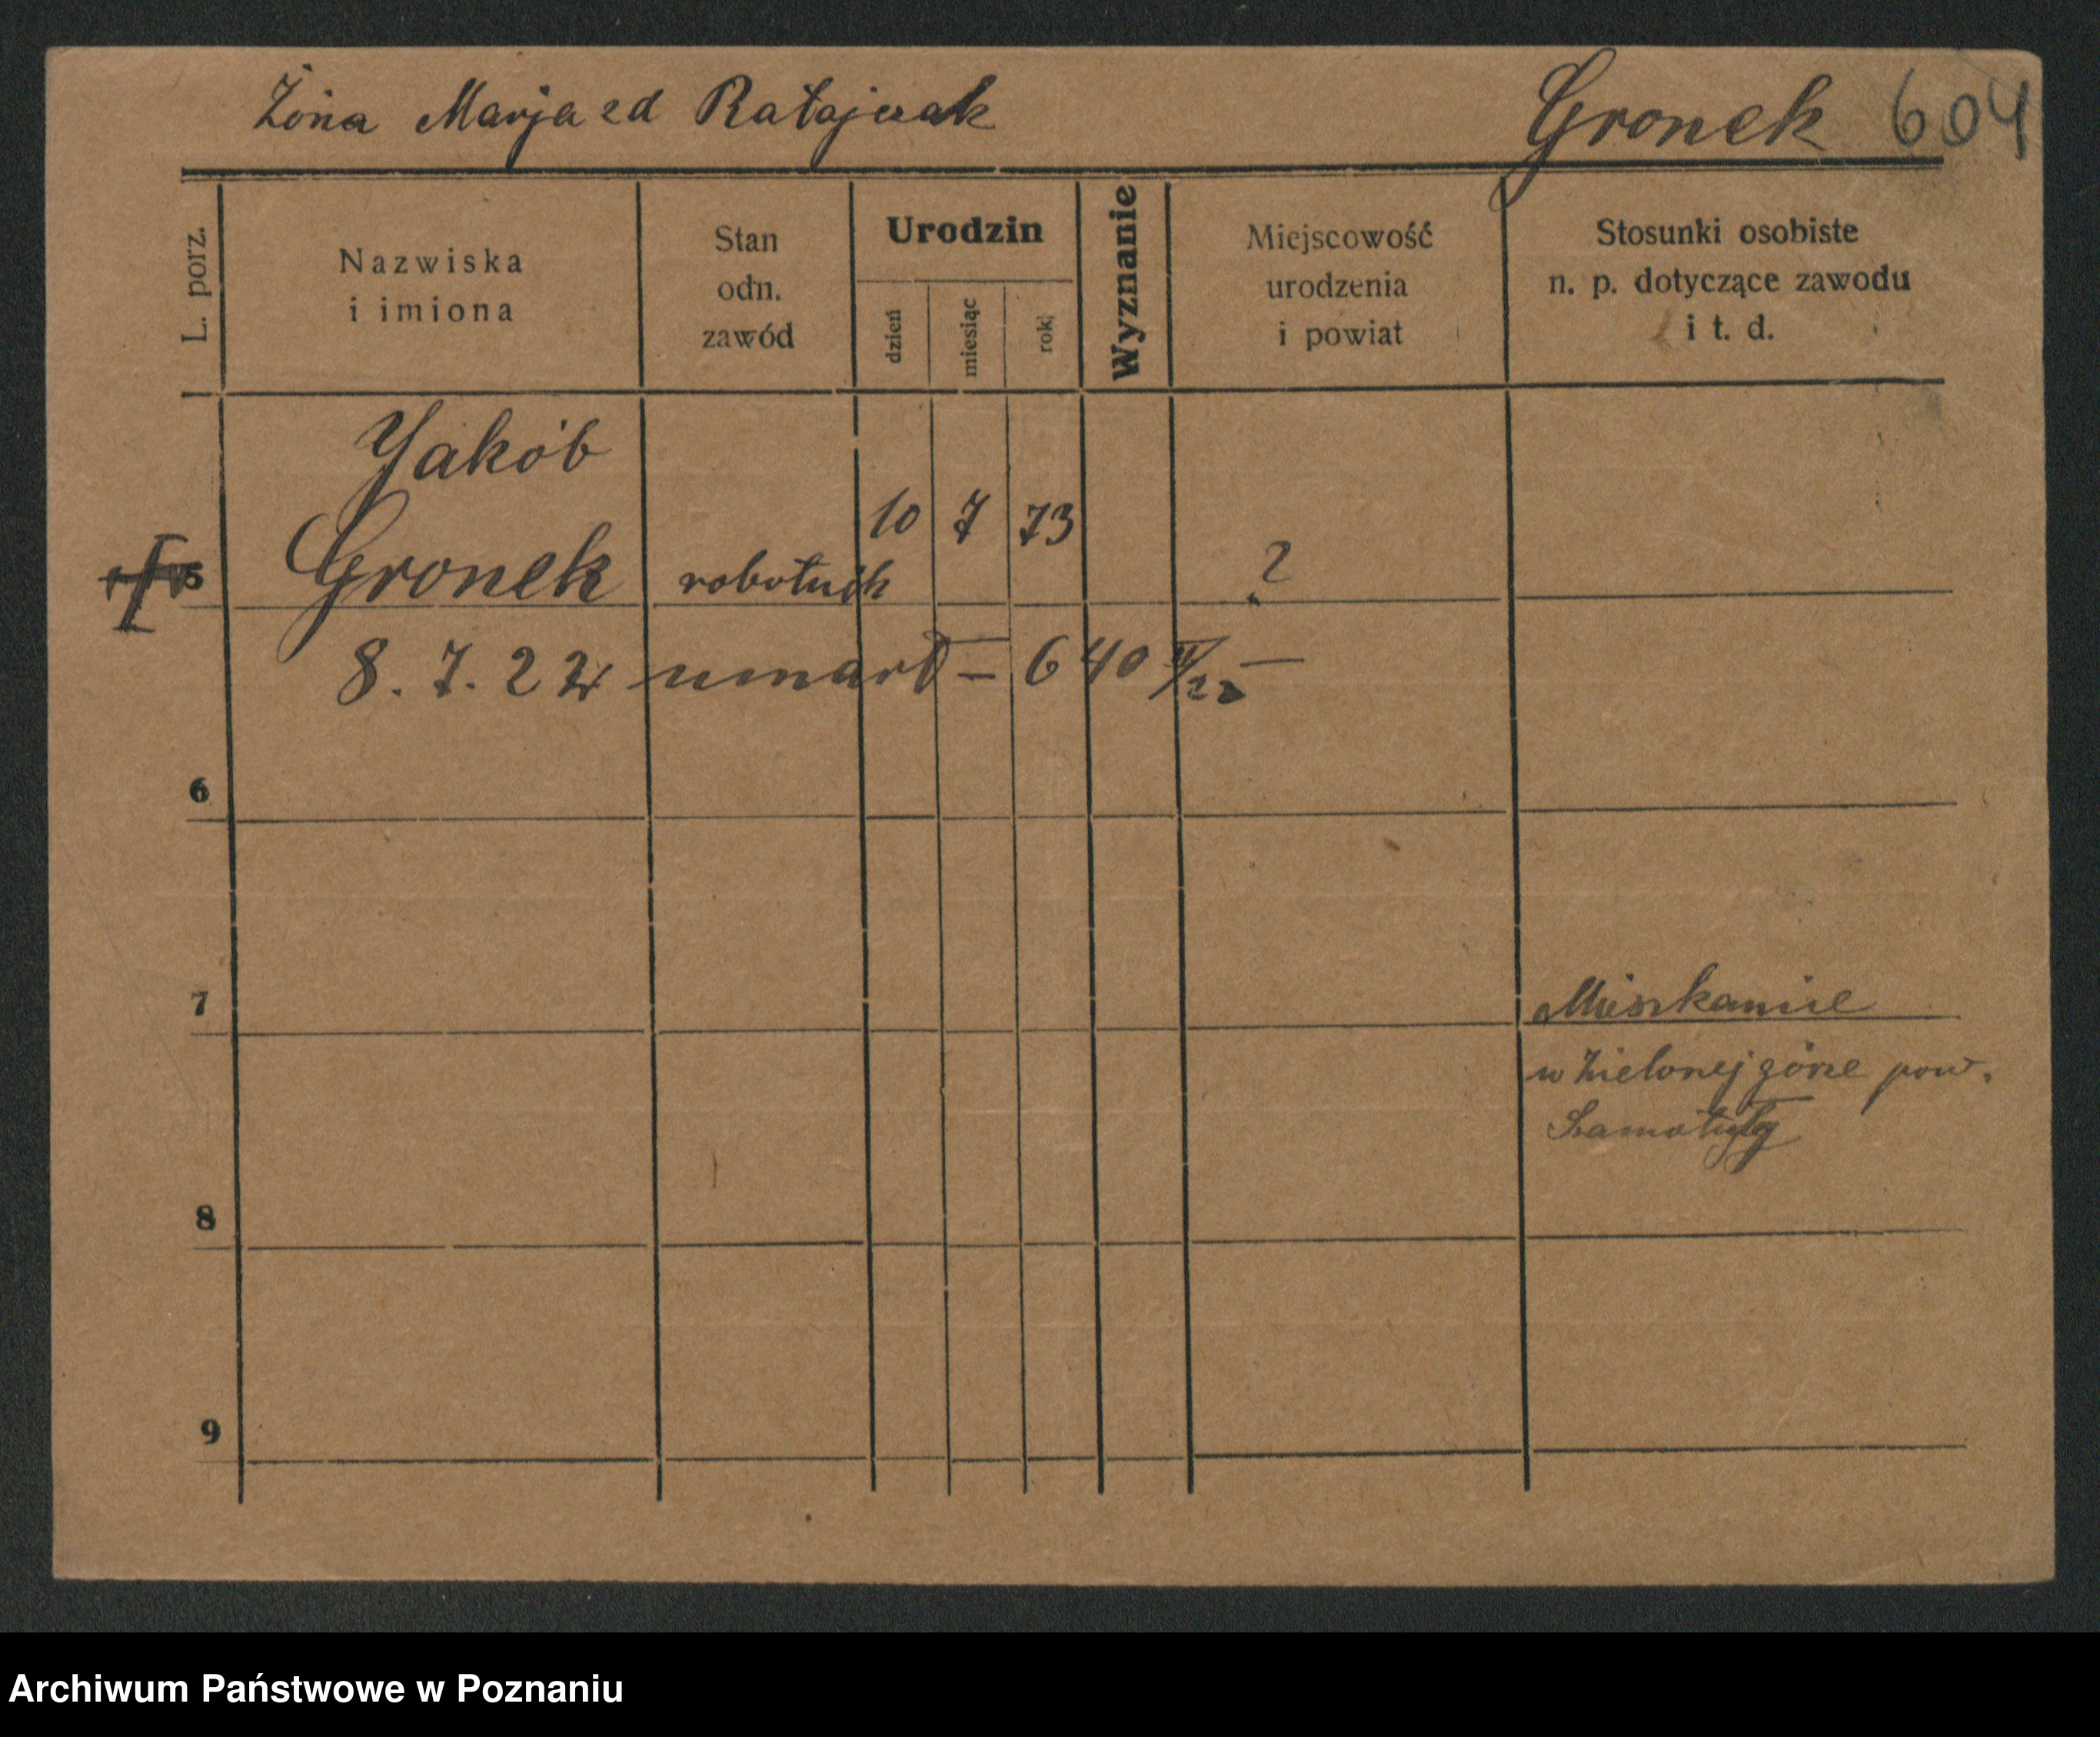 Żona Marja zd Ratajczak
Gronek 604
L. porz.
Nazwiska
i imiona
Stan
odn.
zawód
Urodzin
dzień
miesiąc
rok
Wyznanie
Miejscowość
urodzenia
i powiat
Stosunki osobiste
n. p. dotyczące zawodu
i t. d.
Jakób
Gronek
robotnik
10 7 73
?
5
8. 7. 22 umarł – 640 II/22 –
6
7
Mieszkanie
w Zielonej górze pow.
Szamotuły
8
9
Archiwum Państwowe w Poznaniu